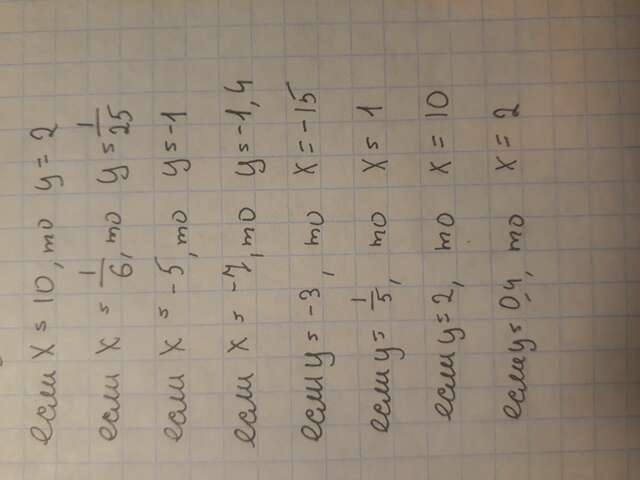 если x = 10, то y = 2
если x = 1/6, то y = 1/25
если x = -5, то y = -1
если x = -7, то y = -1,4
если y = -3, то x = -15
если y = 1/5, то x = 1
если y = 2, то x = 10
если y = 0,4, то x = 2